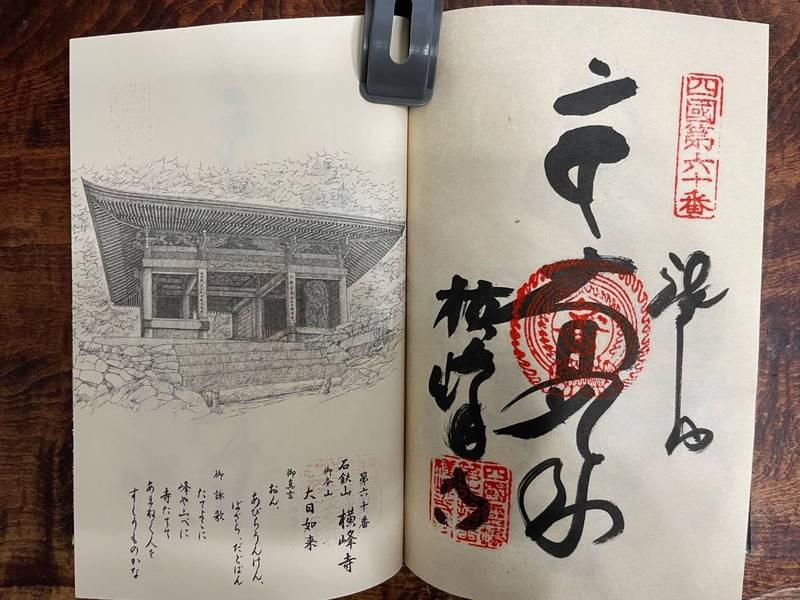 四國第六十番
横峰寺
第六十番
石鈇山 横峰寺
御本尊
大日如来
御真言
おん、
あびらうんけん、
ばざらだどばん
御詠歌
たてよこに
峰や山べに
寺たてて
あまねく人を
すくうものかな